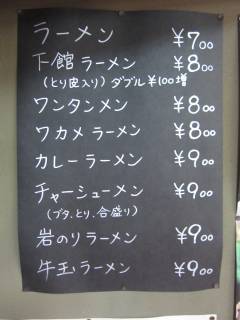 ラーメン ¥700
下館ラーメン ¥800
(とり皮入り)ダブル¥100増
ワンタンメン ¥800
ワカメラーメン ¥800
カレーラーメン ¥900
チャーシューメン ¥900
(ブタ、とり、合盛り)
岩のりラーメン ¥900
牛玉ラーメン ¥900